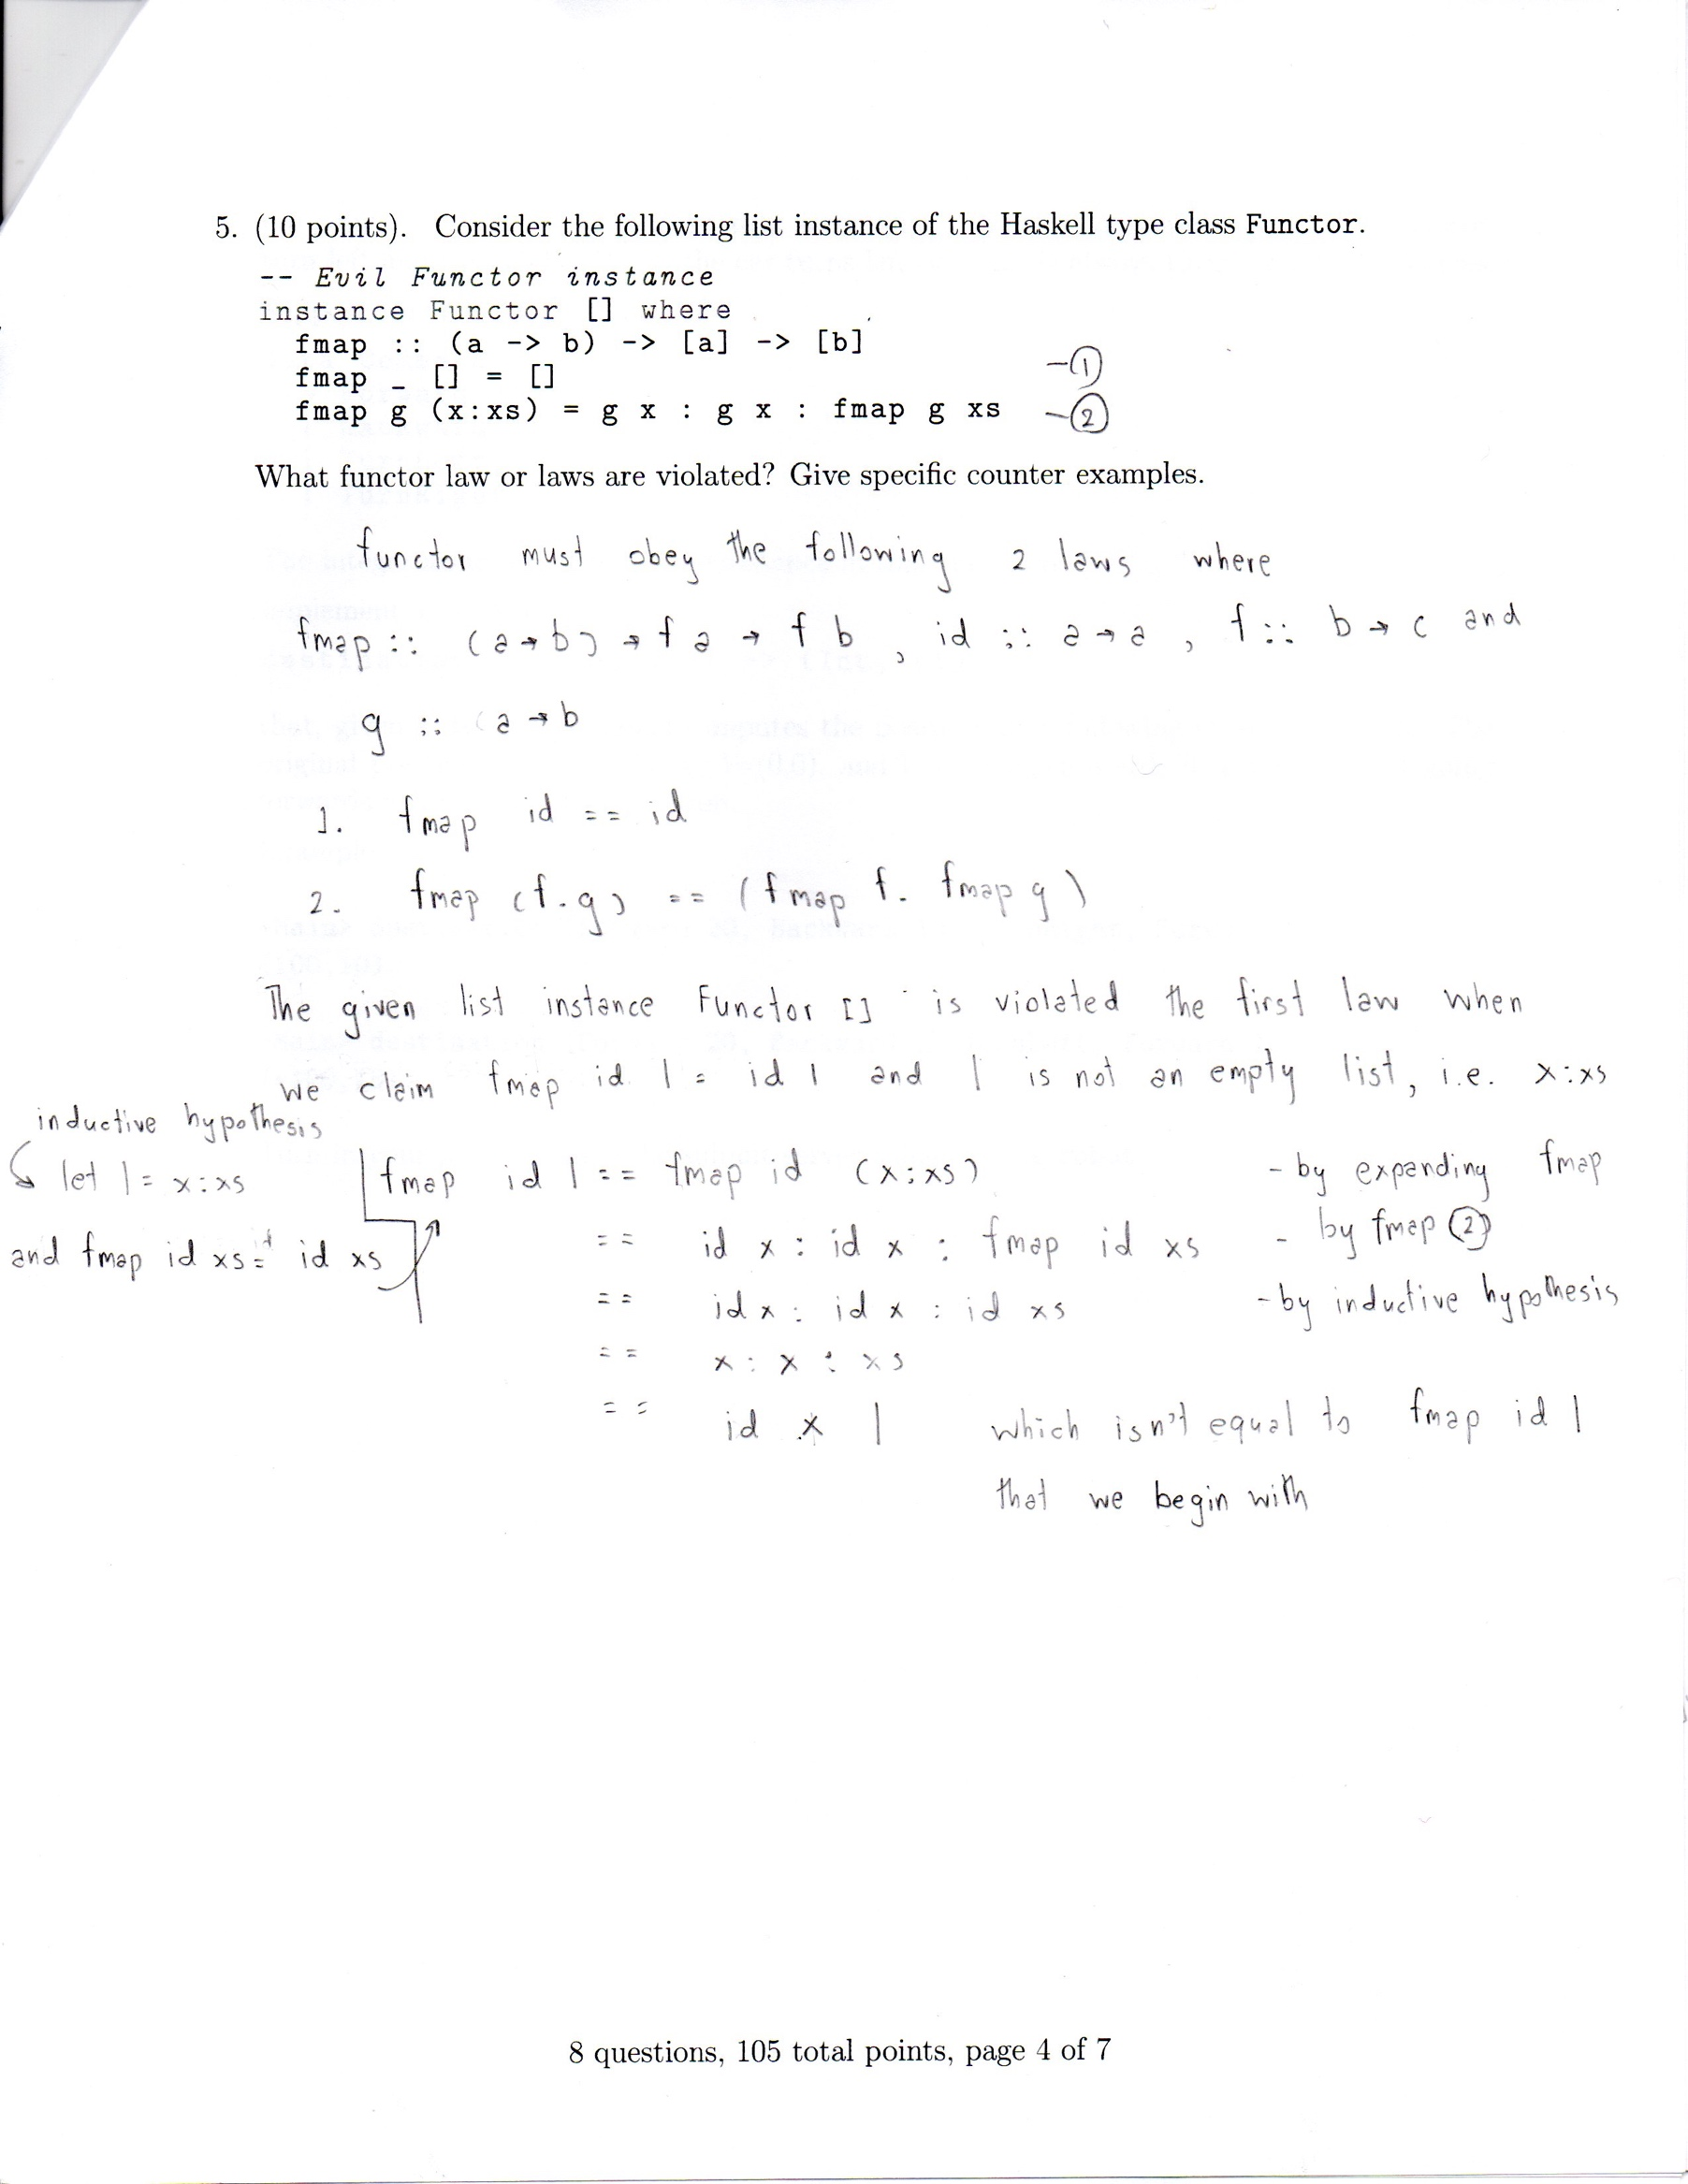 5. (10 points). Consider the following list instance of the Haskell type class Functor.
-- Evil Functor instance
instance Functor [] where
fmap :: (a -> b) -> [a] -> [b]
fmap _ [] = [] -①
fmap g (x:xs) = g x : g x : fmap g xs -②
What functor law or laws are violated? Give specific counter examples.
functor must obey the following 2 laws where
fmap :: (a → b) → f a → f b , id :: a → a , f :: b → c and
g :: a → b
1. fmap id == id
2. fmap (f.g) == (fmap f. fmap g)
The given list instance Functor [] is violated the first law when
we claim fmap id l = id l and l is not an empty list, i.e. x:xs
inductive hypothesis
let l = x:xs
and fmap id xs = id xs
fmap id l == fmap id (x:xs) - by expanding fmap
== id x : id x : fmap id xs - by fmap ②
== id x : id x : id xs - by inductive hypothesis
== x : x : xs
== id x l which isn't equal to fmap id l
that we begin with
8 questions, 105 total points, page 4 of 7